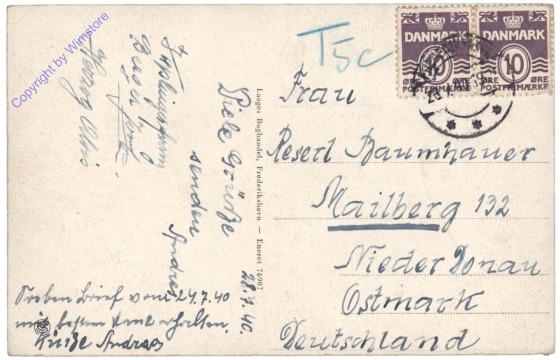 Copyright by Wimstore
T5c
DANMARK
10
ØRE ØRE
POSTFRIMÆRKE
DANMARK
10
ØRE ØRE
POSTFRIMÆRKE
Frau
Reserl Baumhauer
Mailberg 132
Nieder Donau
Ostmark
Deutschland
Lauges Boghandel, Frederikshavn — Eneret 76907
28.7.40.
Viele Grüße
senden
Andreas
Herzog Alois
24.7.40
mit bestem Dank erhalten.
Grüße Andreas